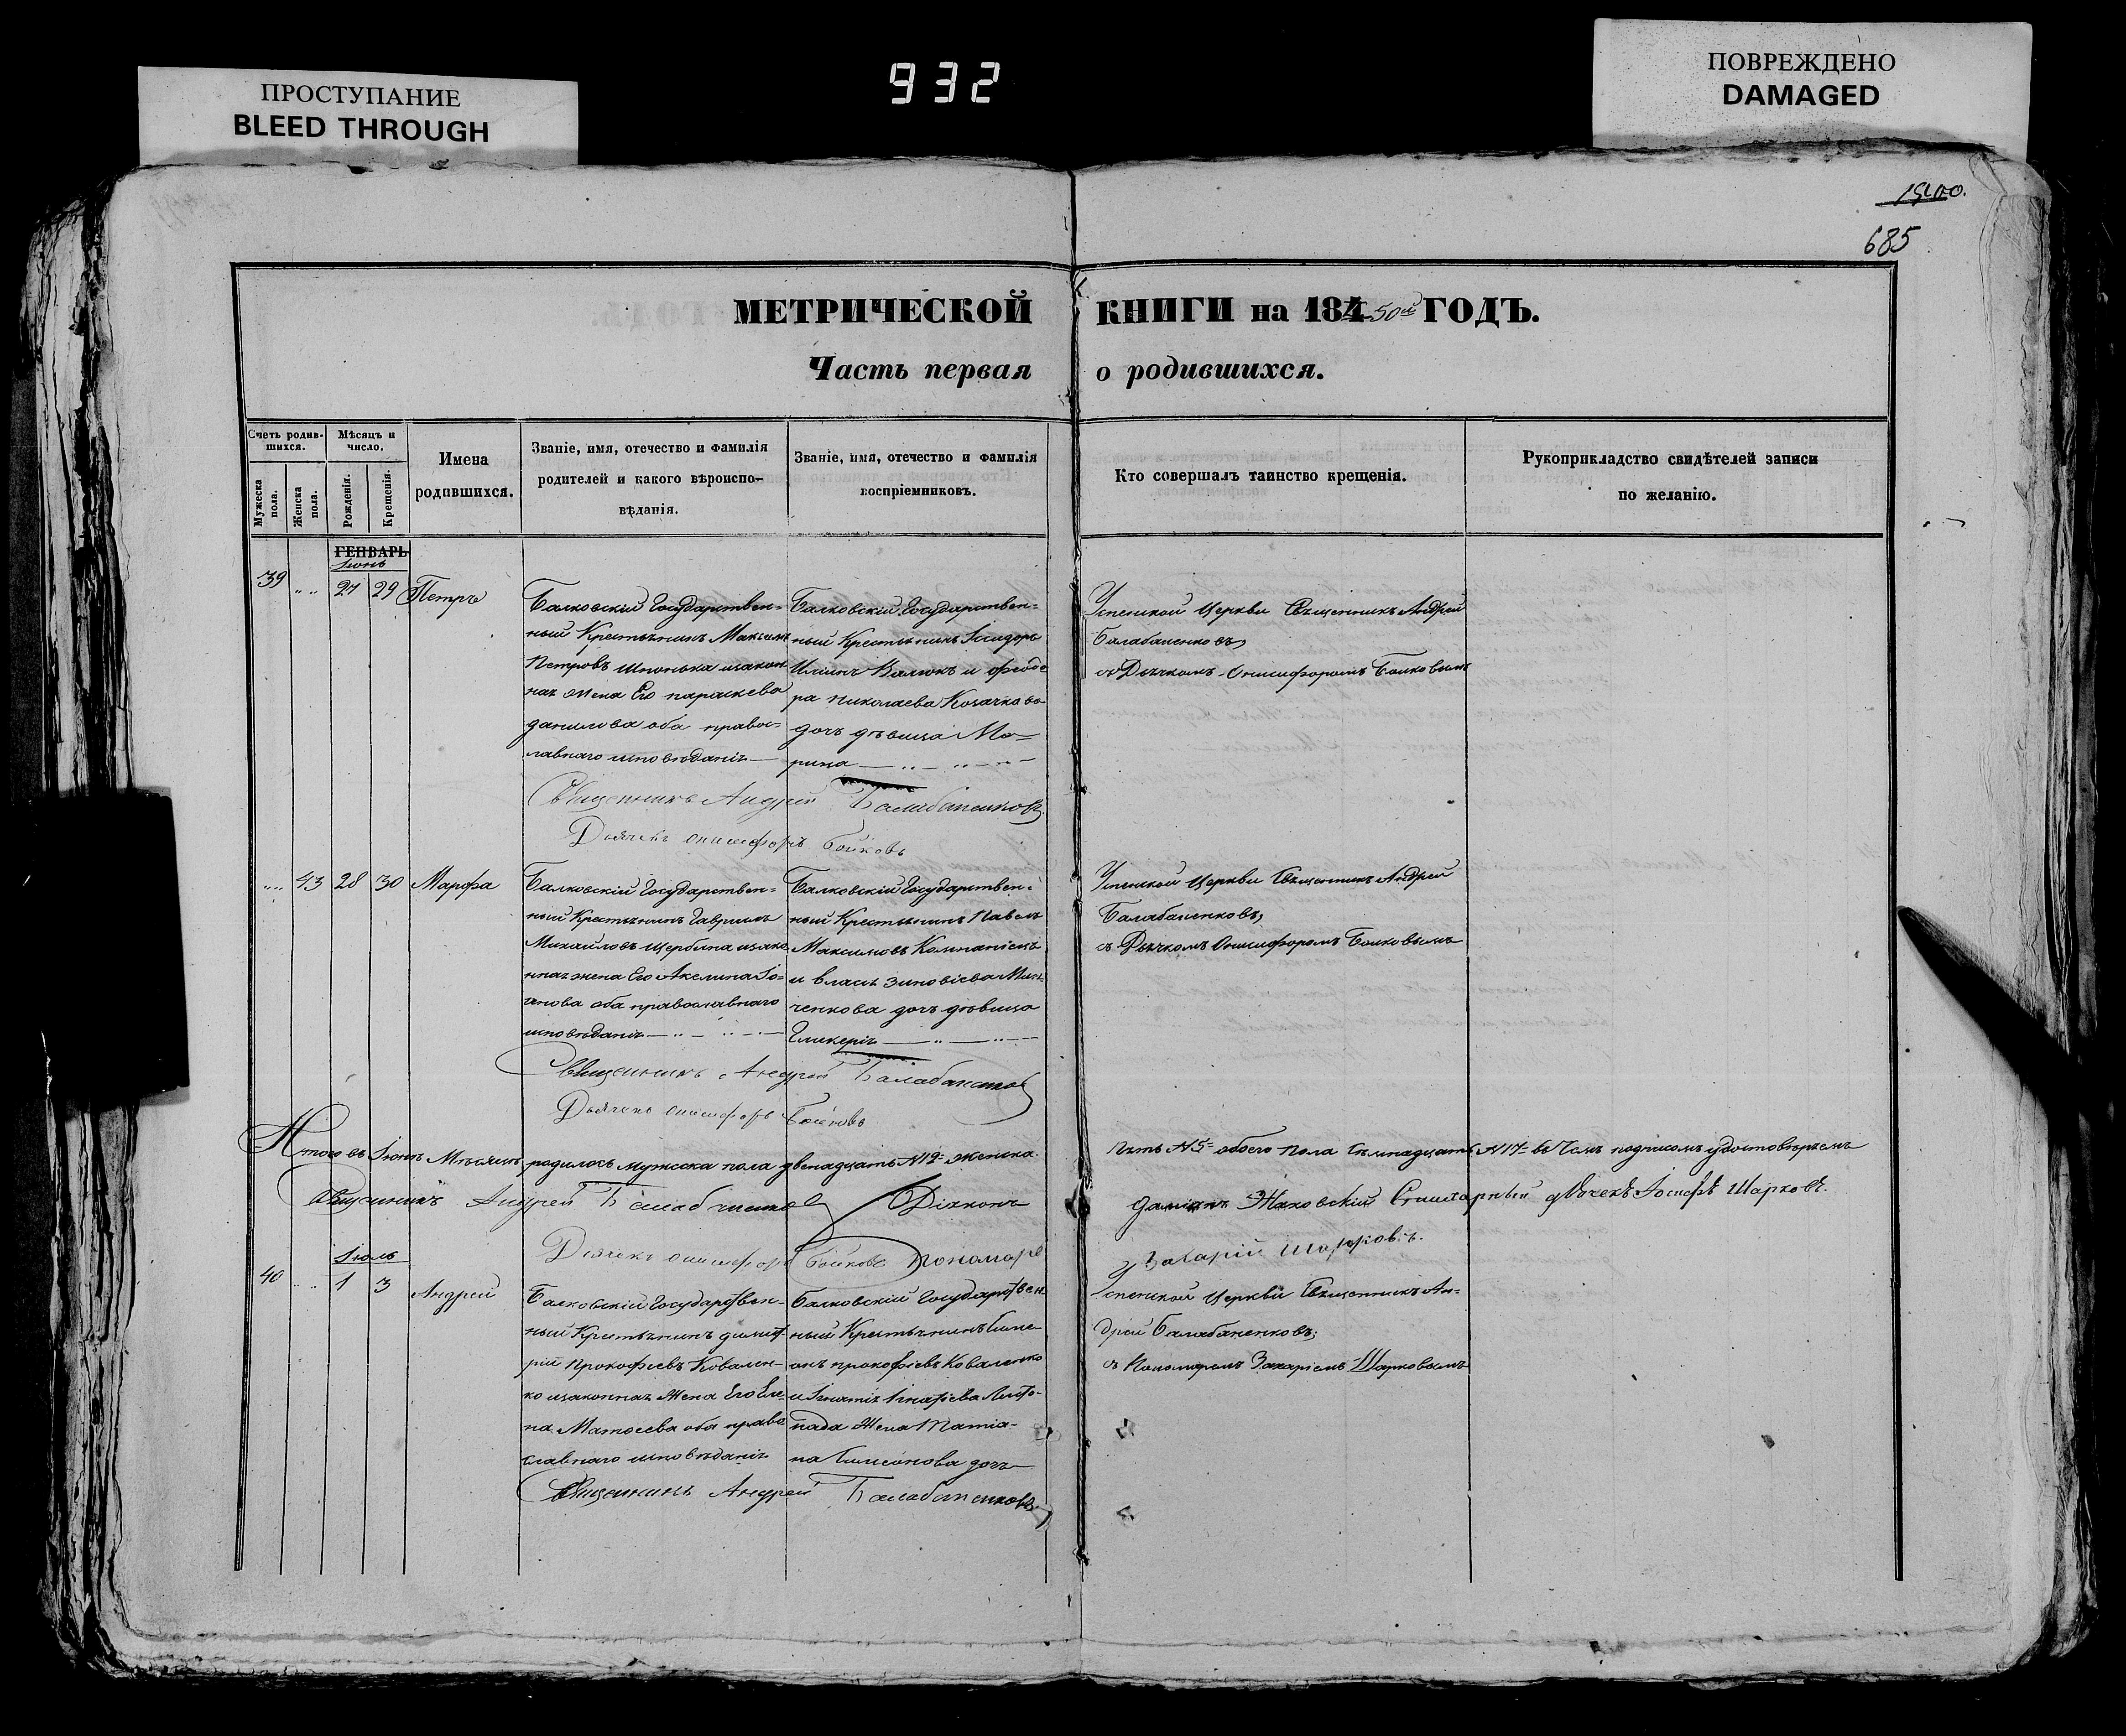 ПРОСТУПАНИЕ
BLEED THROUGH
932
ПОВРЕЖДЕНО
DAMAGED
1400.
685
МЕТРИЧЕСКОЙ КНИГИ на 184 50й ГОДЪ.
Часть первая о родившихся.
Счетъ родив-
шихся.
Мужеска
пола.
Женска
пола.
Мѣсяцъ и
число.
Рожденія.
Крещенія.
Имена
родившихся.
Званіе, имя, отечество и фамилія
родителей и какого вѣроиспо-
вѣданія.
Званіе, имя, отечество и фамилія
воспріемниковъ.
Кто совершалъ таинство крещенія.
Рукоприкладство свидѣтелей записи
по желанію.
ГЕНВАРЬ
Іюнь
39 „ „ 27 29 Петръ
Балковскій Государствен=
ный Крестьянинъ Максимъ
Петровъ Шпонька изакон
ная жена Его параскева
данилова оба правос=
лавнаго исповѣданія
Балковскій Государствен=
ный Крестьянинъ Исидоръ
Иліинъ Валюкъ и Феодо
ра Николаева Козачкова
дочь дѣвица Ма=
рина
Успенской Церкви Священникъ Андрей
Балабаненковъ,
съ Дьячкомъ Онисифоромъ Бойковымъ
Священникъ Андрей Балабаненковъ
Дьячекъ Онисифоръ Бойковъ
„ „ 43 28 30 Марфа
Балковскій Государствен=
ный Крестьянинъ Гавриилъ
Михайловъ Щербина изако
нная жена Его Акелина Іо=
анова оба православнаго
исповѣданія
Балковскій Государствен=
ный Крестьянинъ Павелъ
Максимовъ Компаніецъ
и Власа Зиновіева Мин
ченкова дочь дѣвица
Гликерія
Успенской Церкви Священникъ Андрей
Балабаненковъ,
съ Дьячкомъ Онисифоромъ Бойковымъ
Священникъ Андрей Балабаненковъ
Дьячекъ Онисифоръ Бойковъ
Итого въ Іюнѣ Мѣсяцѣ родилось мужеска пола двенадцать №12= женска
пять №5= обоего пола семнадцать №17= въ Чемъ подписомъ удостовѣряемъ
Священникъ Андрей Балабаненковъ Діяконъ
Даміанъ Жаковскій Стихарный дьячекъ Іосифъ Шарковъ.
Дьячекъ Онисифоръ Бойковъ Пономарь
Захарій Шарковъ.
Іюль
40 „ „ 1 3 Андрей
Балковскій Государствен-
ный Крестьянинъ димит
рій Прокофіевъ Ковален-
ко изаконная Жена Его Еле
на Матѳеева оба право
славнаго исповѣданія
Балковскій Государствен
ный Крестьянинъ Симе
онъ прокофіевъ Коваленко
и Игнатія Игнатіева Листо-
пада Жена Татіа-
на Симеонова дочь
Успенской Церкви Священникъ Ан=
дрей Балабаненковъ;
съ Пономаремъ Захаріемъ Шарковымъ
Священникъ Андрей Балабаненковъ